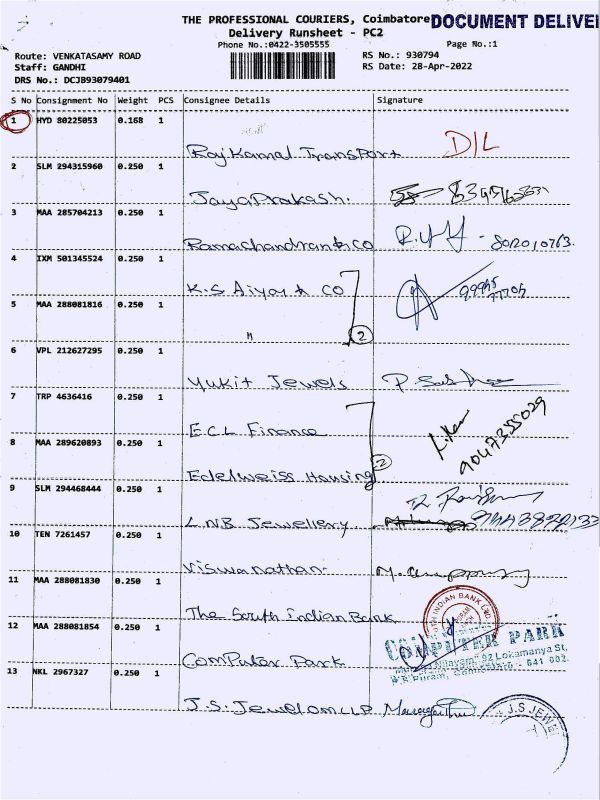 THE PROFESSIONAL COURIERS, Coimbatore DOCUMENT DELIVE
Delivery Runsheet - PC2
Phone No.:0422-3505555 Page No.:1
Route: VENKATASAMY ROAD RS No.: 930794
Staff: GANDHI RS Date: 28-Apr-2022
DRS No.: DCJB93079401
S No Consignment No Weight PCS Consignee Details Signature
1 HYD 80225053 0.168 1
RajKamal Transport D/L
2 SLM 294315960 0.250 1
JayaPrakash.
3 MAA 285704213 0.250 1
Ramachandran & CO
4 IXM 501345524 0.250 1
K.S Aiyar & CO
5 MAA 288081816 0.250 1
" 2
6 VPL 212627295 0.250 1
Yukit Jewels
7 TRP 4636416 0.250 1
ECL Finance
8 MAA 289620893 0.250 1 9047355029
Edelweiss Housing 2
9 SLM 294468444 0.250 1
LNB Jewellery
10 TEN 7261457 0.250 1
Viswanathan
11 MAA 288081830 0.250 1
The South Indian Bank
12 MAA 288081854 0.250 1 COMPUTER PARK
Computer Park Lokamanya St,
R.S Puram, Coimbatore - 641 002.
13 NKL 2967327 0.250 1
J.S. Jewel om LLP J.S JEWE